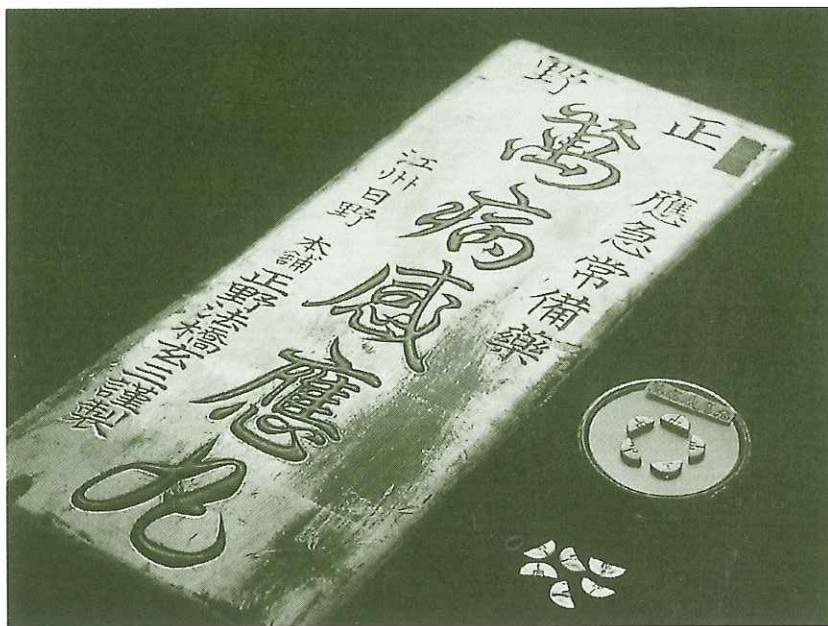 正野
應急常備藥
萬病感應丸
江州日野
本舗
正野法橋玄三謹製